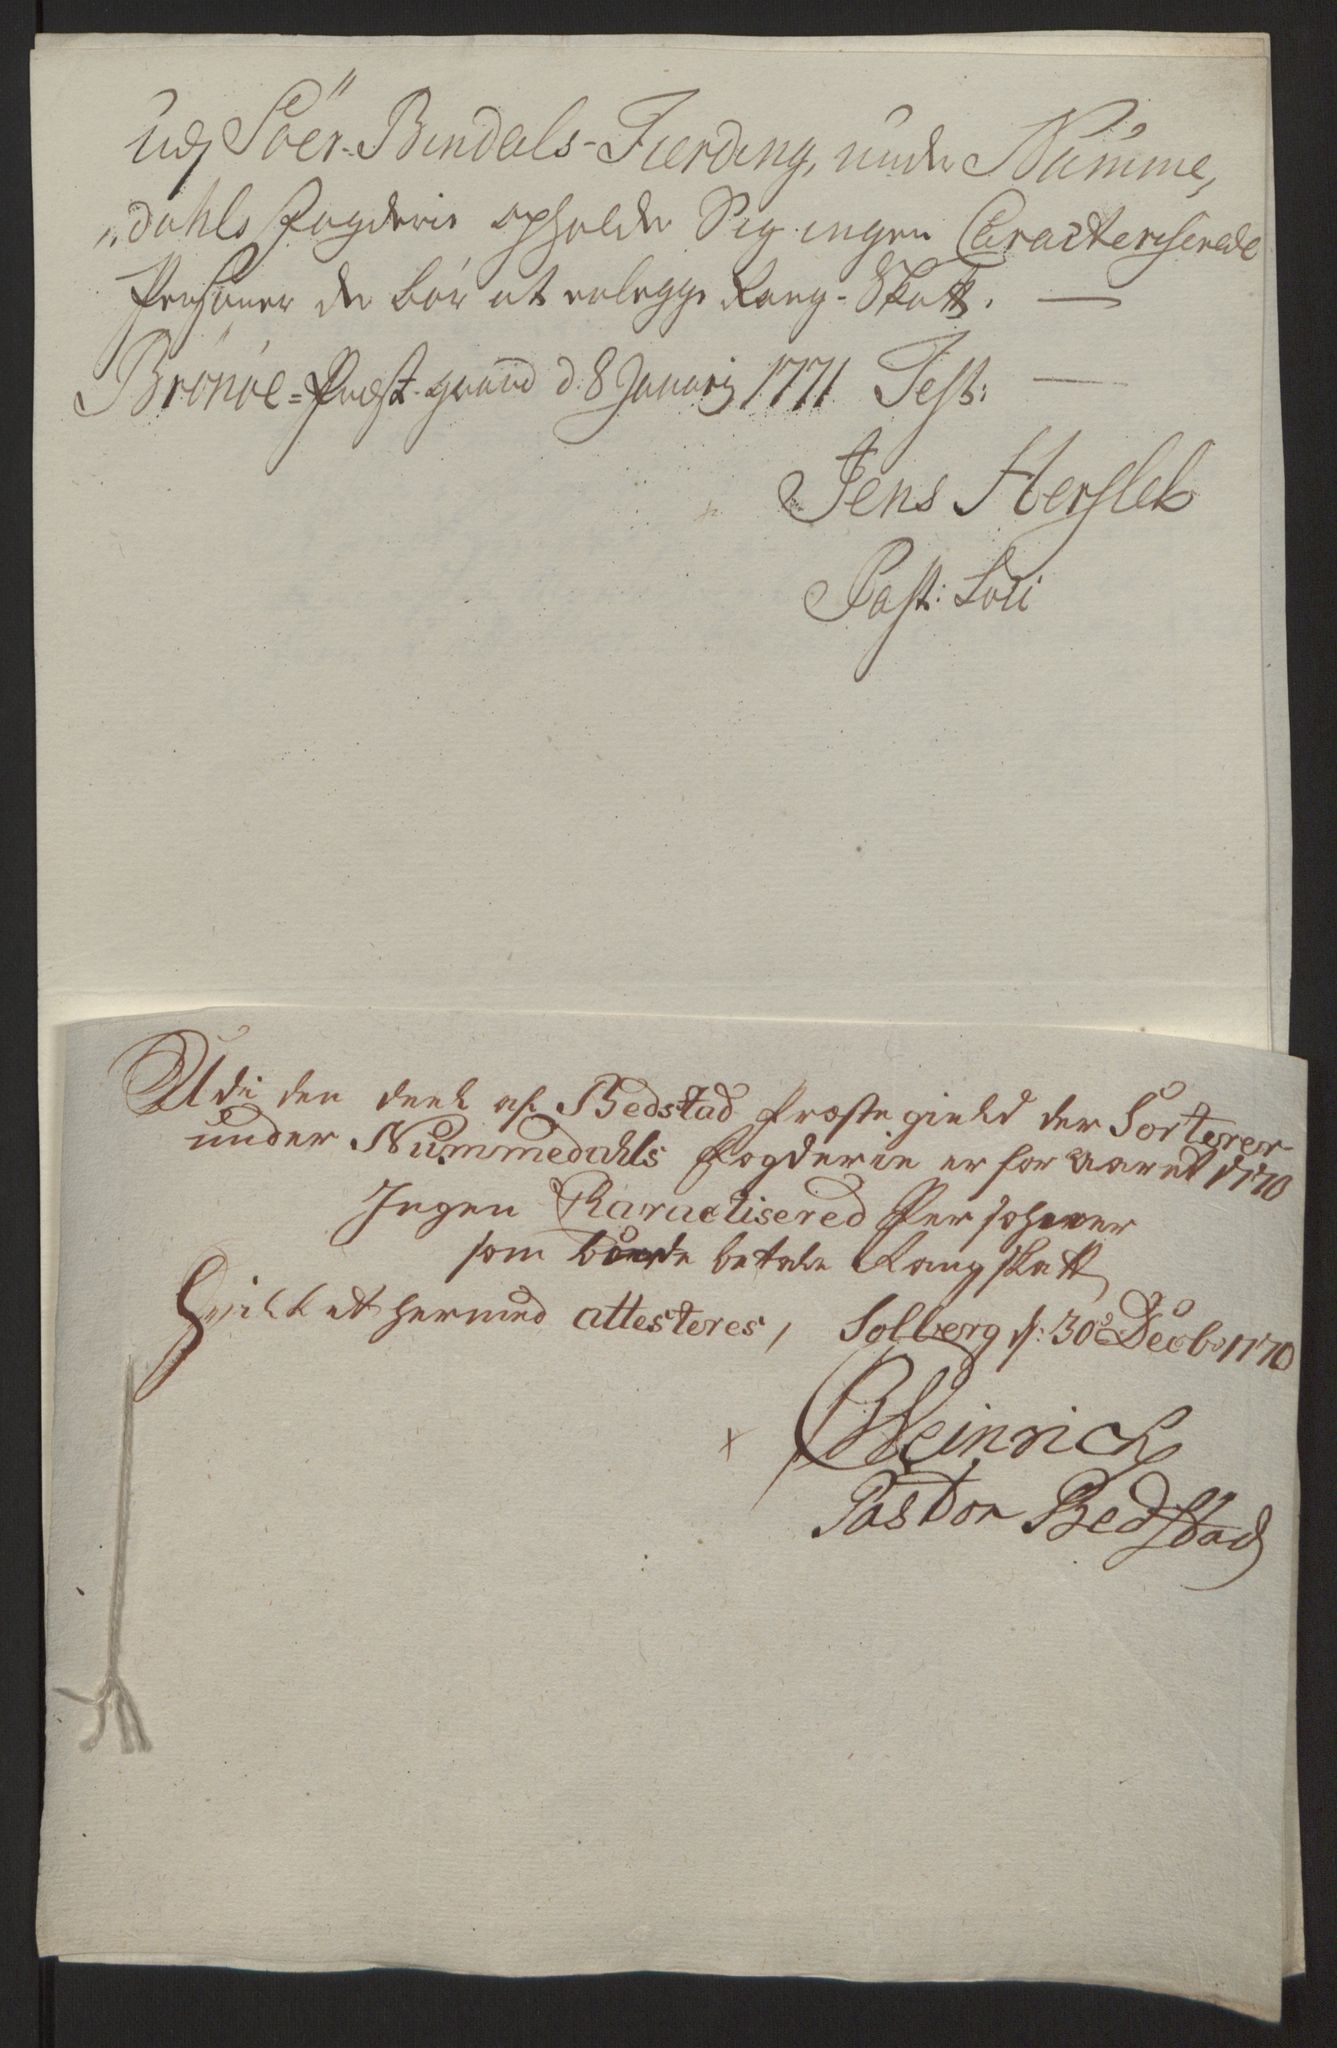 Udj Söer-Bindals-Fierding, under Numme,
„dahls Fogderie opholder Sig ingen Caracteriserede
Persóner der bór at erlegge Rang-Skatt. —
Brónóe=Præst-gaard d: 8 Januarij 1771 Test: —
Jens Hersleb
Past: Loci
Udi den deel af Bedstad Præstegield der Sorterer
under Nummedahls Fogderie er for aaret 1770
Ingen Karactisered Persohner
som burde betale Rangskatt
Hvilket hermed attesteres, Solberg d: 30 Decbr 1770
Heinrich
Pastor Bedstad